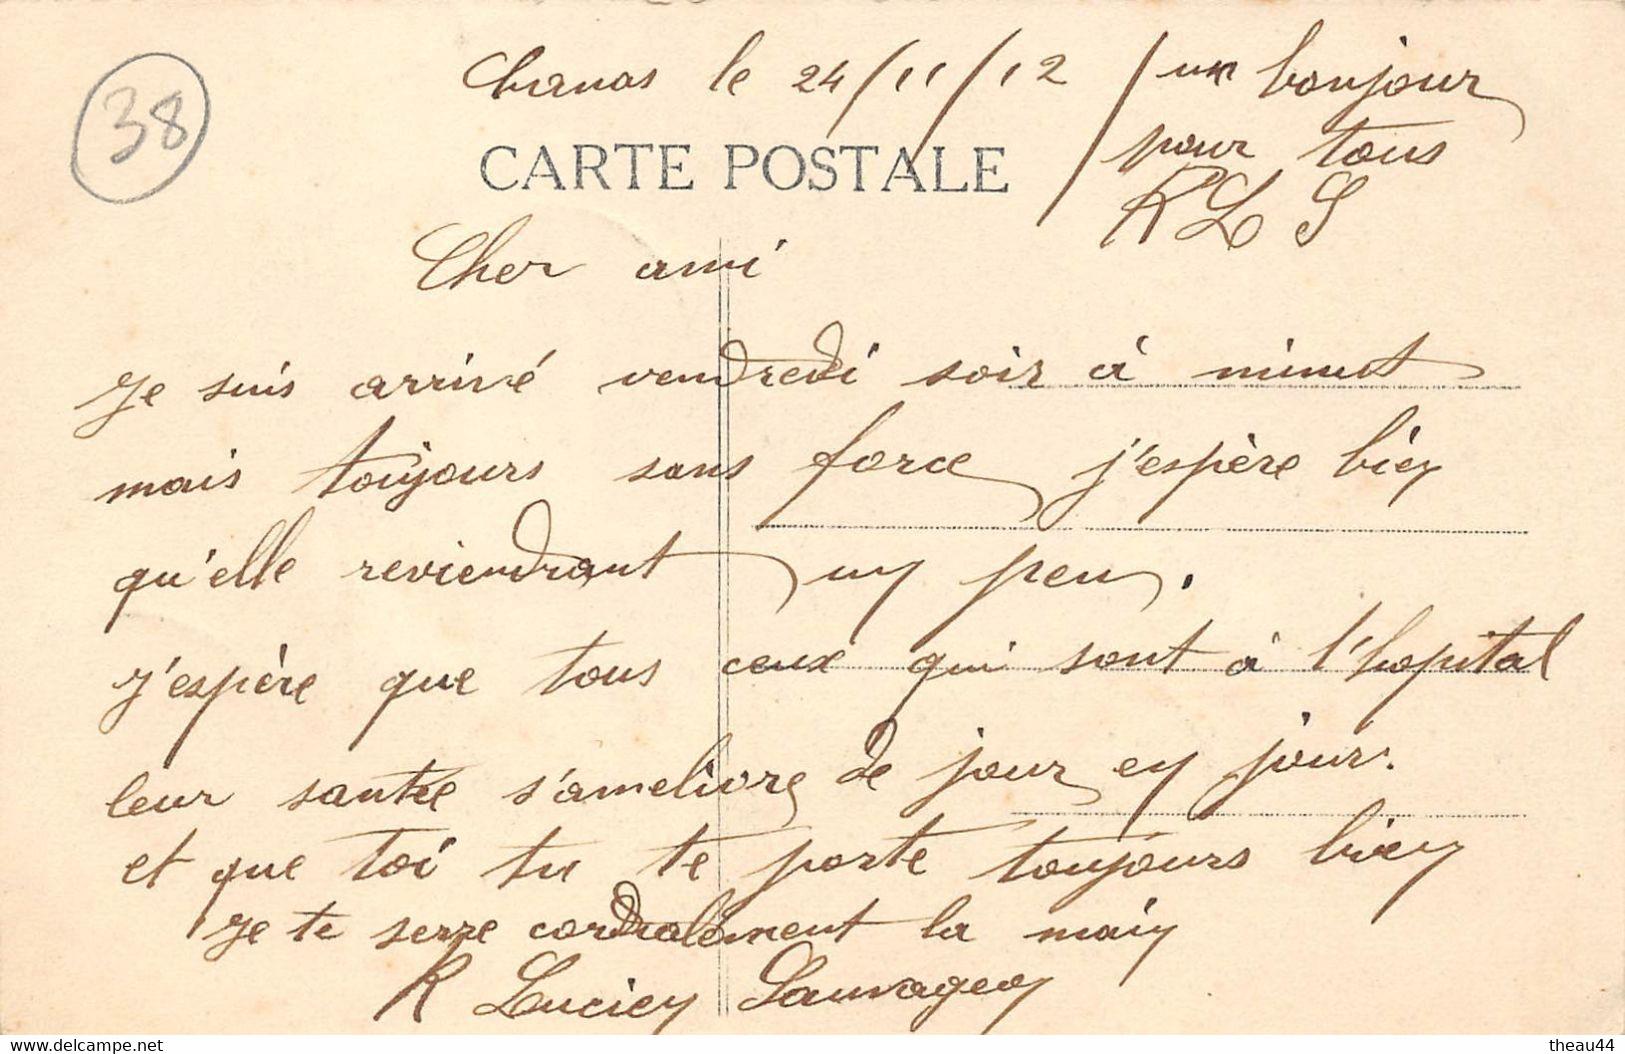 38
Chanas le 24/11/12 / un bonjour
pour tous
R L S
CARTE POSTALE
Cher ami
Je suis arrivé vendredi soir à minuit
mais toujours sans force j'espère bien
qu'elle reviendrant un peu.
J'espère que tous ceux qui sont à l'hopital
leur santée s'ameliore de jour en jour.
et que toi tu te porte toujours bien
Je te serre cordialement la main
R Lucien Sauvageon
www.delcampe.net
theau44